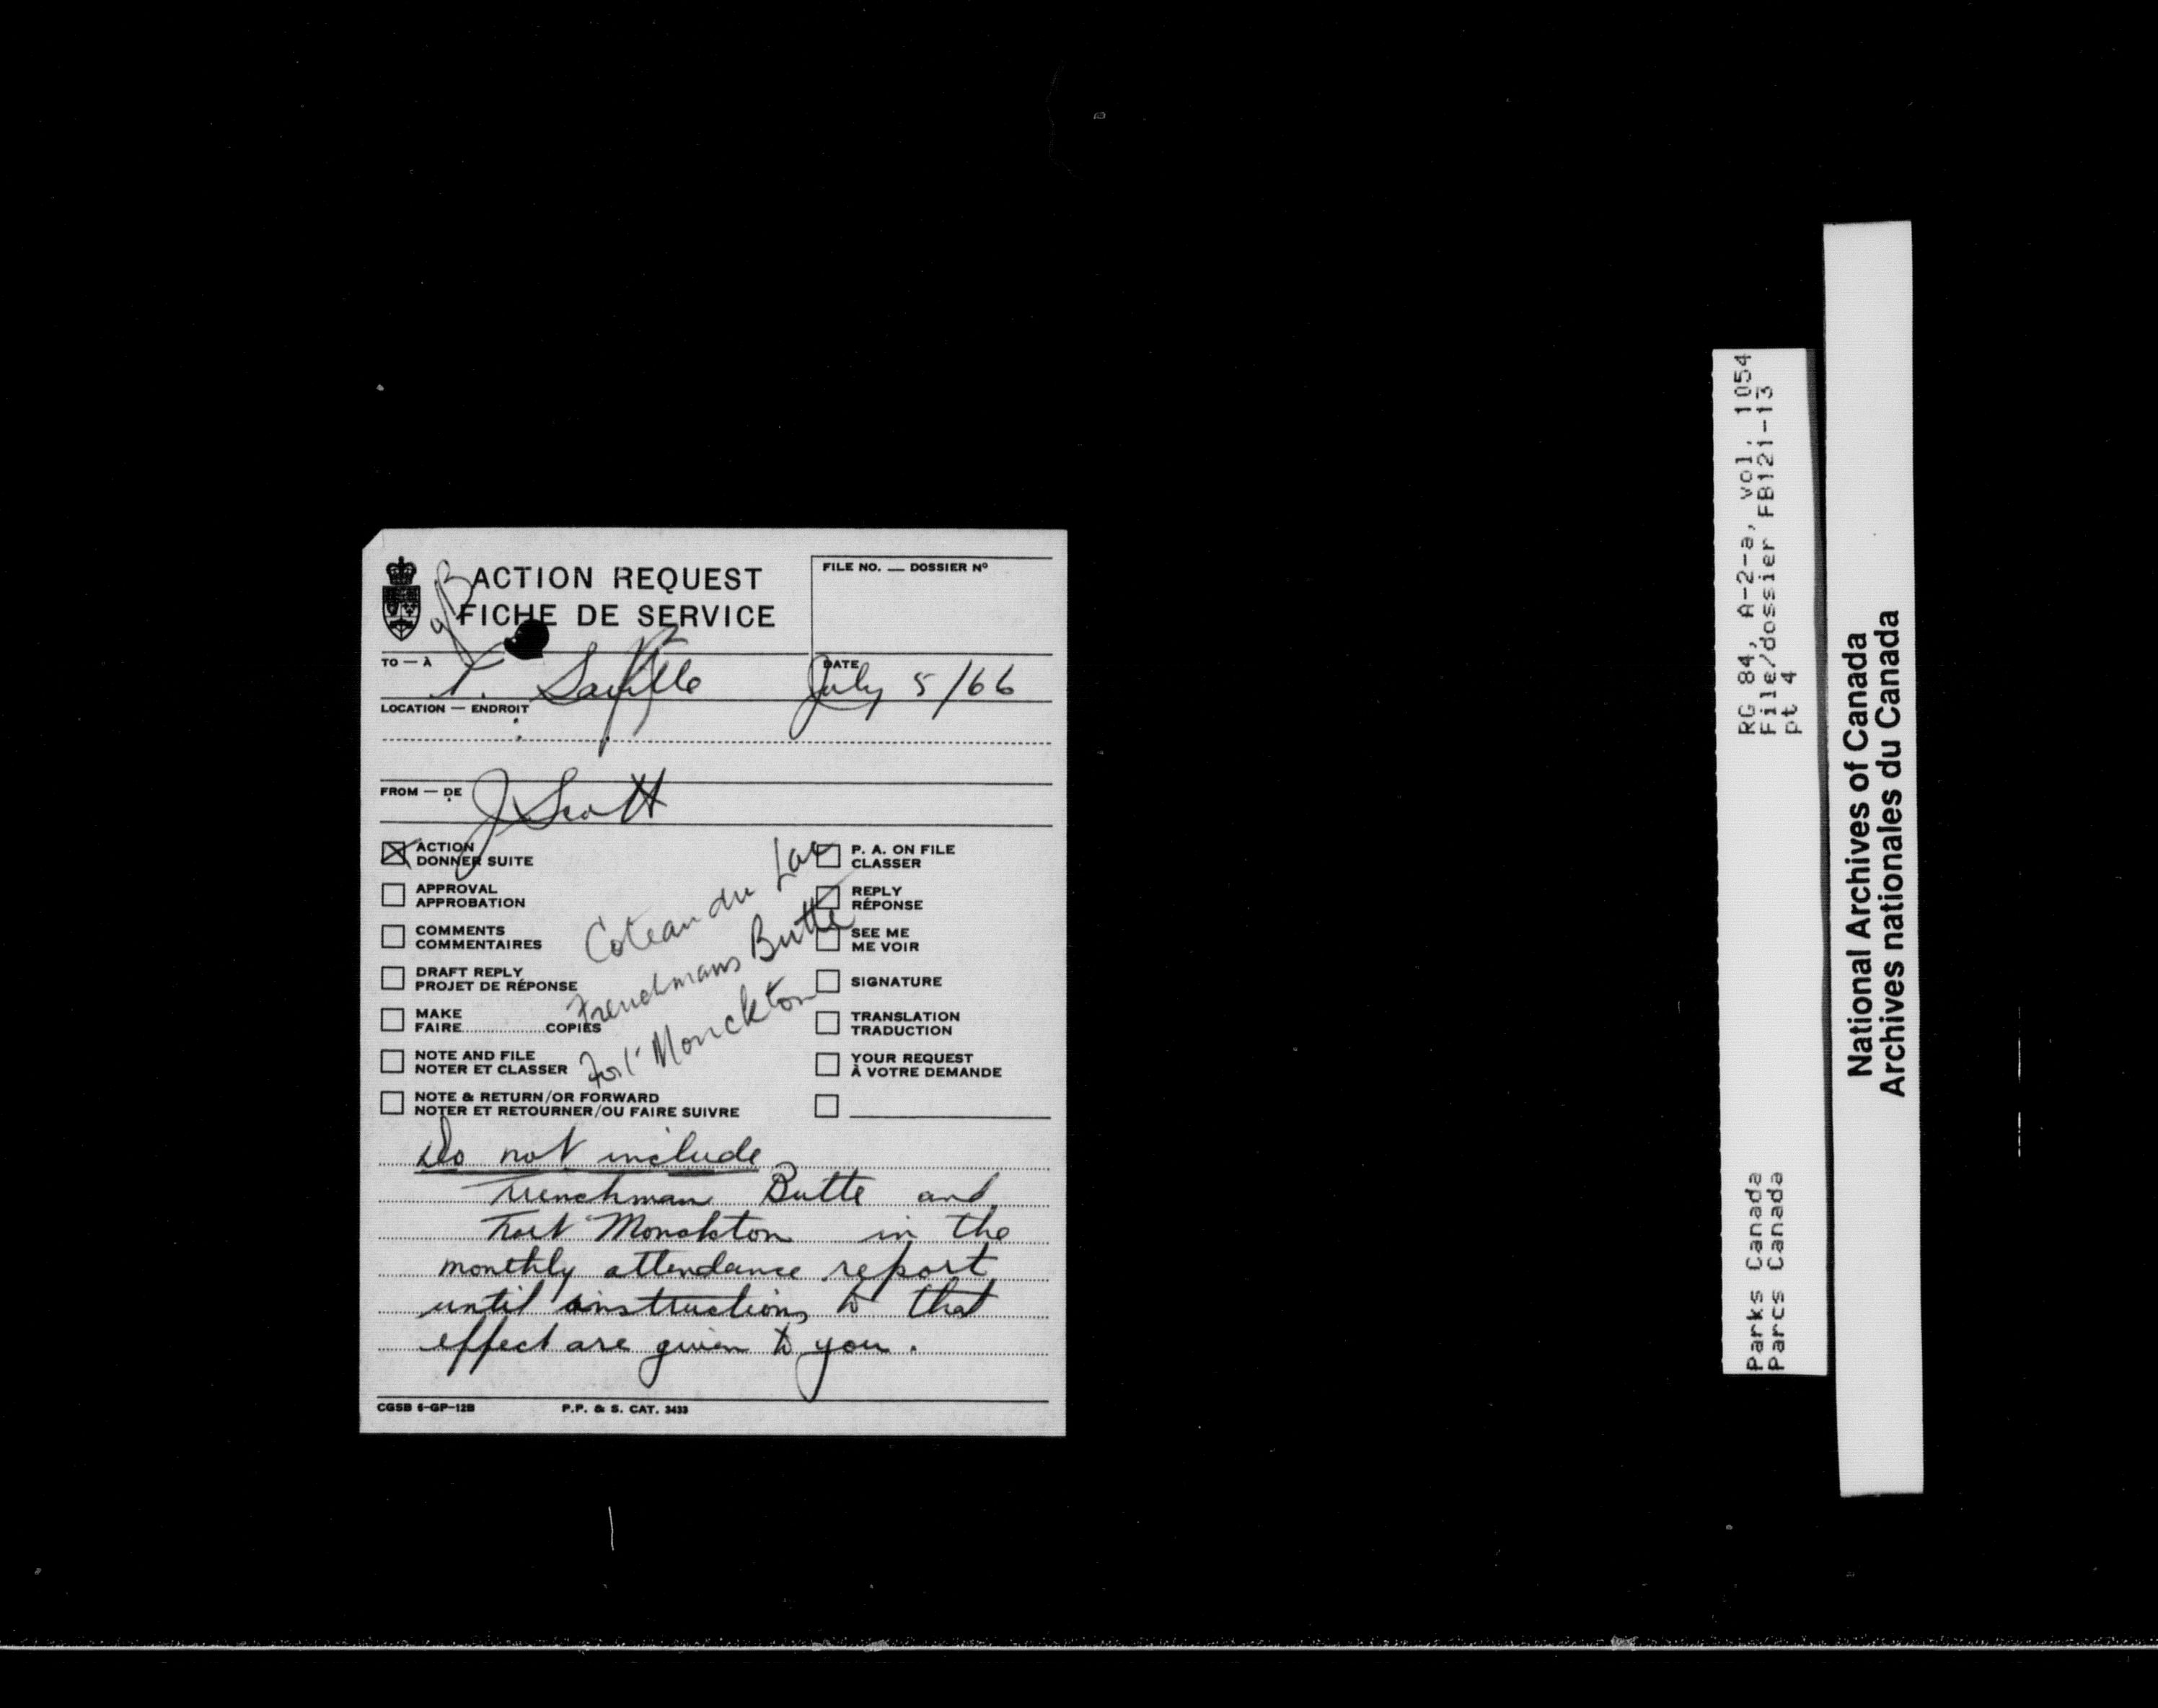 ACTION REQUEST
FICHE DE SERVICE
FILE NO. — DOSSIER Nº
TO — À
Saville
DATE
July 5/66
LOCATION — ENDROIT
FROM — DE
J Scott
ACTION
DONNER SUITE
APPROVAL
APPROBATION
COMMENTS
COMMENTAIRES
DRAFT REPLY
PROJET DE RÉPONSE
MAKE
FAIRE..................COPIES
NOTE AND FILE
NOTER ET CLASSER
NOTE & RETURN/OR FORWARD
NOTER ET RETOURNER/OU FAIRE SUIVRE
P. A. ON FILE
CLASSER
REPLY
RÉPONSE
SEE ME
ME VOIR
SIGNATURE
TRANSLATION
TRADUCTION
YOUR REQUEST
À VOTRE DEMANDE
Coteau du Lac
Frenchmans Butte
Fort Monckton
Do not include
Frenchman Butte and
Fort Monckton in the
monthly attendance report
until instructions to that
effect are given to you.
CGSB 6-GP-12B
P.P. & S. CAT. 3433
RG 84, A-2-a, vol. 1054
File/dossier FB121-13
pt 4
Parks Canada
Parcs Canada
National Archives of Canada
Archives nationales du Canada